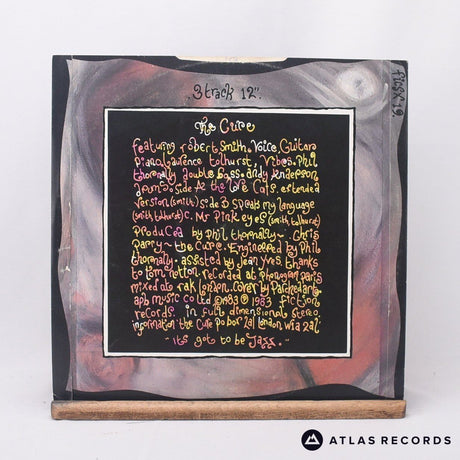 3 track 12".
ficsx 19
The Cure
featuring robert Smith~Voice, Guitar,
Piano, Laurence tolhurst, Vibes. Phil
thornally double Bass. andy Anderson
Drums. Side A the love Cats. extended
version (smith) Side B Speak my language
(smith tolhurst) C. Mr Pink eyes (smith tolhurst)
Produced by phil thornally~. Chris
Parry~ the Cure. Engineered by Phil
thornally. assisted by Jean Yves. thanks
to tom netton recorded at phonogram paris
mixed at rak london. cover by Parchedart
apb music co ltd ©1983 ℗ 1983 fiction
records. in full dimensional stereo.
information the Cure po box 2al london w1a 2al
"it's got to be Jazz."
ATLAS RECORDS